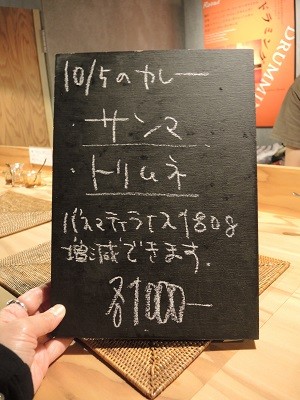 10/5のカレー
サンマ
トリムネ
バスマティライス180g
増減できます.
各1000ー
ドラミン
DRUMMIN